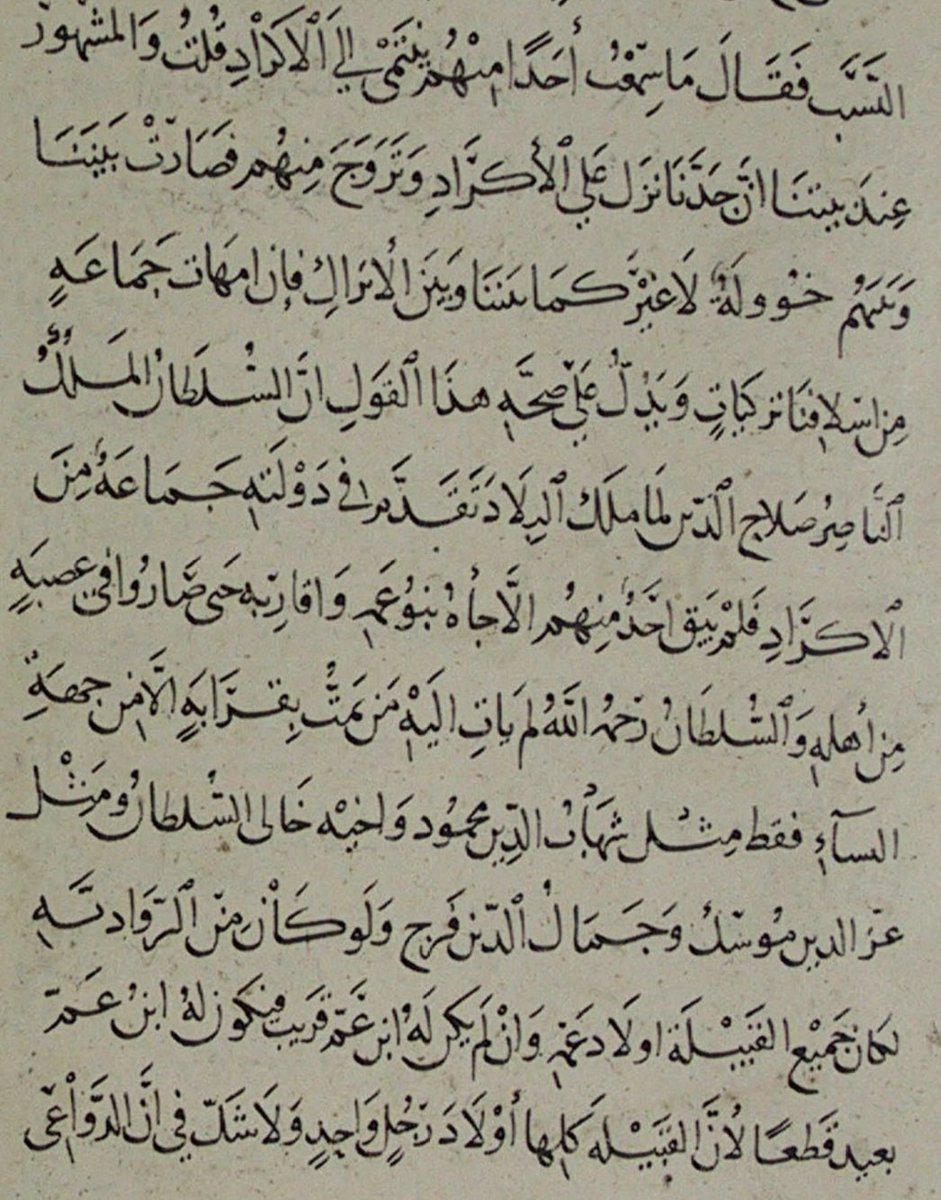 النَّسَب فَقَالَ مَا سِمْعتُ أحَدًا مِنْهُم يَنْتَمِى إلي اَلْاكرَادِ قُلتُ وَالمَشْهُورُ
عِندَ بيتنَا انَّ جَدَّنَا نزل عَلي اَلْأكرَادِ وَتَزَوَجَ مِنهُم فصَارَتْ بَيننَا
وَبَينهُم خُوولَةٌ لَا غيْرَ كَمَا بَيننا وَبَينَ الْاترَاكِ فإن امهَات جَمَاعَهٍ
مِن اسْلافنَا تركيَاتٍ وَيَدُلُّ عَلَي صِحَّهِ هذَا اَلقَولِ انَّ السُلطَانَ المَلكُ
اَلنَّاصِرُ صَلَاح اَلدّين لمَا ملَكَ اَلبِلَادَ تَقَدَّمَ في دَوْلَتهِ جَمَاعَةٌ مِنَ
اَلاكرَادِ فَلمْ يَبق احَدٌ مِنهُم الَّا جَأهُ بَنوُ عَمّهِ وَاقارِبه حَتى صَارُوا في عصبَهٍ
مِن أهلهِ وَاَلسُّلطَانُ رَحمهُ اللَّهُ لم يَاتِ اليَهْ مَن يَمتُّ بِقرَابَةٍ الَّا مِن جهَةِ
النسآءِ فقط مِثل شهَابُ الدِّين محمُود وَاخيْه خَالى السّلطَانُ وَمثل
عزّ الدين مُوسَك وَجَمَالُ اَلدّين فرَج وَلَو كَانَ مِنَ اَلرّوَادِيَّهِ
لكان جَميْع القَبيْلَة اولَاد عَمّهِ وَانْ لَم يكن لَهُ ابن عَمّ قَريب فيكَون لهُ ابنُ عَمّ
بعيد قَطعًا لأنَّ القَبيْله كَلهَا أوْلَاد رَجُلٍ وَاحِدٍ وَلَا شَكّ في اَنَّ الدَّوَاعَى